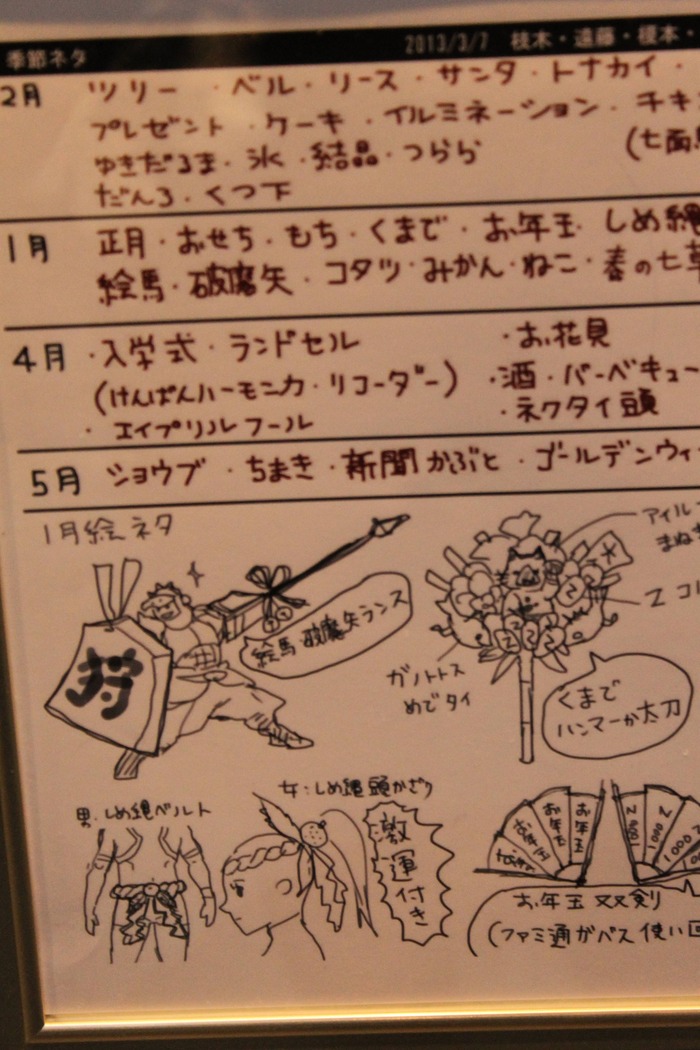 季節ネタ 2013/3/7 枝木・遠藤・榎本・
2月 ツリー・ベル・リース・サンタ・トナカイ・
プレゼント・ケーキ・イルミネーション・チキ
ゆきだるま・氷・結晶・つらら (七面
だんろ・くつ下
1月 正月・おせち・もち・くまで・お年玉 しめ縄
絵馬・破魔矢・コタツ・みかん・ねこ・春の七草
4月 ・入学式・ランドセル ・お花見
(けんばんハーモニカ・リコーダー) ・酒・バーベキュー
・エイプリルフール ・ネクタイ頭
5月 ショウブ・ちまき・新聞かぶと・ゴールデンウィ
1月絵ネタ
アイルー
まねき
狩
絵馬 破魔矢ランス
Z コ
ガノトトス
めでタイ
くまで
ハンマーか太刀
男:しめ縄ベルト
女:しめ縄頭かざり
激運付き
お年玉
お年玉
お年玉
お年玉
1000
1000
1000
お年玉双剣
(ファミ通がパス使い回